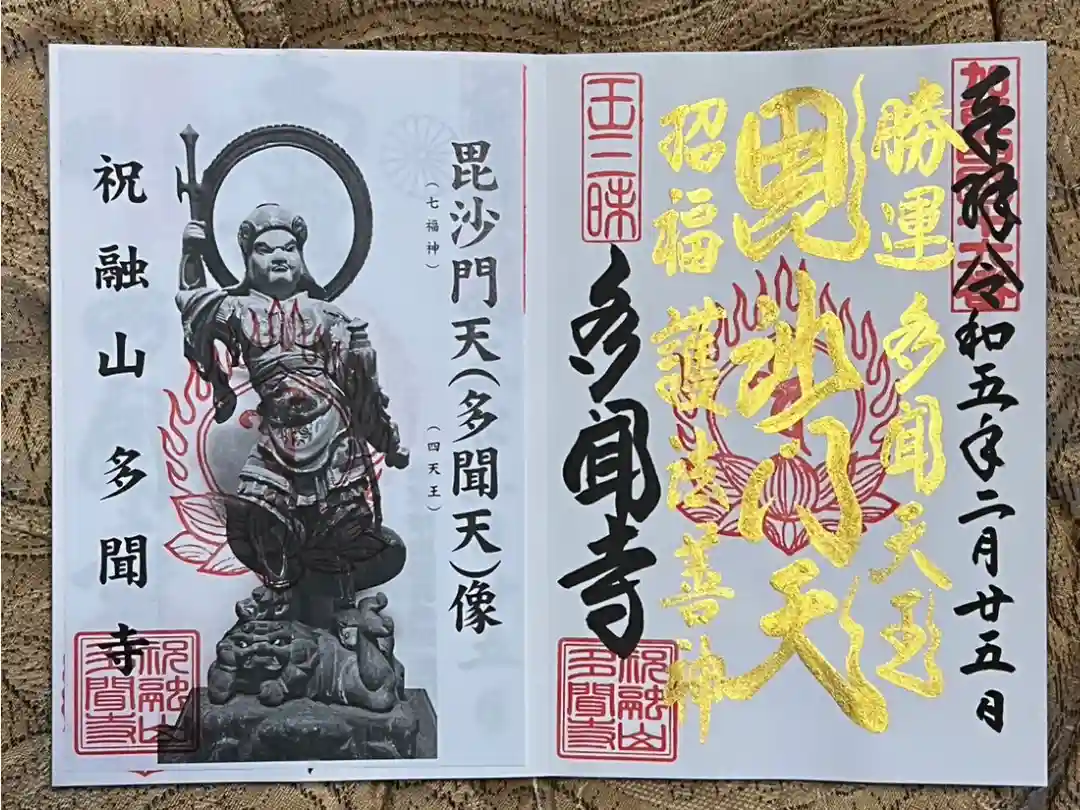 奉拝令和五年二月廿五日
勝運 多聞天王
毘沙門天
招福 護法善神
玉三昧
多聞寺
祝融山
多聞寺
毘沙門天(多聞天)像
(七福神)
(四天王)
祝融山多聞寺
祝融山
多聞寺